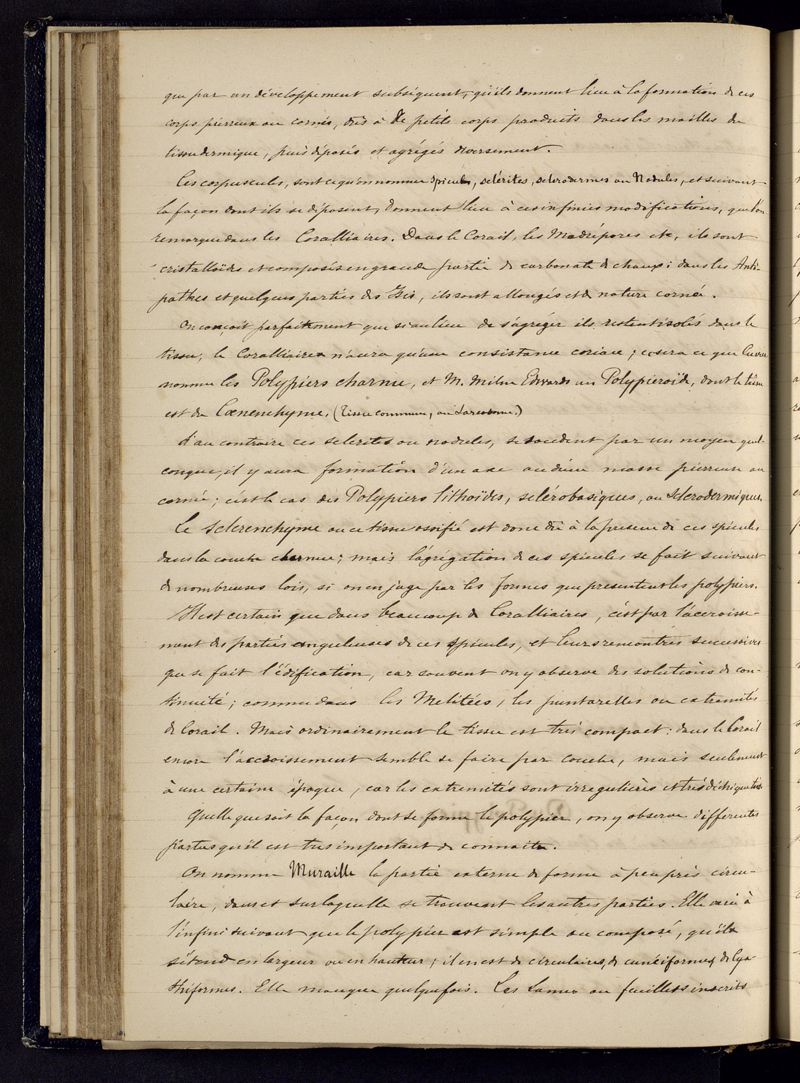 que par un développement subséquent, qu'ils donnent lieu à la formation de ces
corps pierreux ou cornés, dûs à de petits corps produits dans les mailles du
tissu dermique, puis déposés et agrégés diversement.
Ces corpuscules, sont ce qu'on nomme Spicules, sclérites, sclerodermes ou Nodules, et suivant
la façon dont ils se déposent, donnent lieu à ces infinies modifications, que l'on
remarque dans les Coralliaires. Dans le Corail, les Madrépores etc, ils sont
cristalloïdes et composés en grande partie de carbonate de chaux : dans les Anti-
pathes et quelques parties des Isis, ils sont allongés et de nature cornée.
On conçoit parfaitement que si au lieu de s'agréger ils restent isolés dans le
tissu, le Coralliaire n'aura qu'une consistance coriace ; ce sera ce que Cuvier
nomme les Polypiers charnu, et M. Milne Edwards un Polypieroïde, dont le tissu
est du Cœnenchyme, (Tissu commun, ou Sarcosome.)
Si au contraire ces sclerites ou nodules, se soudent par un moyen quel-
conque, il y aura formation d'un axe ou d'une masse pierreuse ou
corné ; c'est le cas des Polypiers lithoïdes, sclérobasiques, ou Sclerodermiques.
Le Sclerenchyme ou ce tissu ossifié est donc dû à la presence de ces spicules
dans la couche charnue ; mais l'agrégation de ces spicules se fait suivant
de nombreuses lois, si on en juge par les formes que presentent les polypiers.
Il est certain que dans beaucoup de Coralliaires, c'est par l'accroisse-
ment des parties anguleuses de ces spicules, et leurs rencontres successives
que se fait l'édification, car souvent on y observe des solutions de con-
tinuité ; comme dans les Melitées, les puntarelles ou extremités
de Corail. Mais ordinairement le tissu est très compact : dans le Corail
encore l'accroissement semble se faire par couche, mais seulement
à une certaine époque, car les extremités sont irregulières et très déchiquetées
Quelle que soit la façon dont se forme le polypier, on y observe differentes
parties qu'il est tres important de connaitre.
On nomme Muraille la partie externe de forme à peu près circu-
laire, dans et sur laquelle se trouvent les autres parties. Elle varie à
l'infini suivant que le polypier est simple ou composé, qu'il
s'étend en largeur ou en hauteur ; il en est de circulaires, de cunéiformes, de Cya-
thiformes. Elle manque quelquefois. Les Lames ou feuillets inscrits